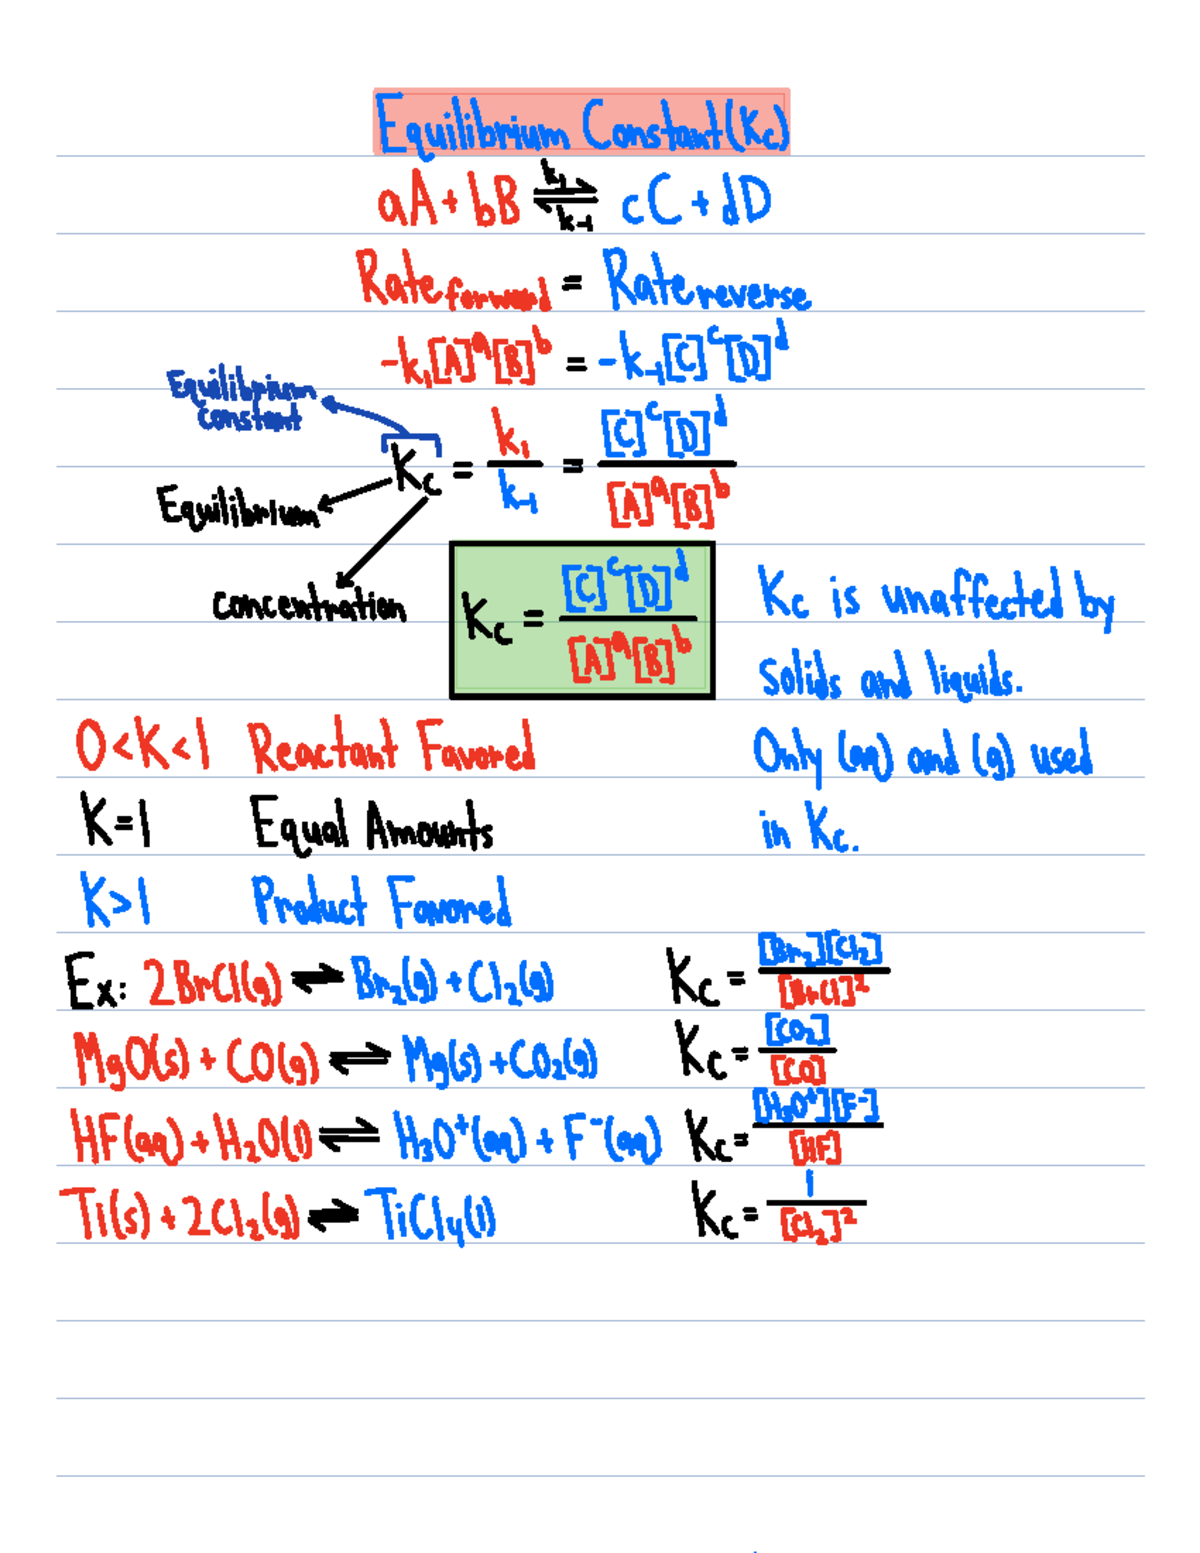 Equilibrium Constant (Kc)
aA + bB ⇌ cC + dD
k₁
k₋₁
Rate forward = Rate reverse
-k₁[A]ᵃ[B]ᵇ = -k₋₁[C]ᶜ[D]ᵈ
Equilibrium
constant
Kc = k₁/k₋₁ = [C]ᶜ[D]ᵈ/[A]ᵃ[B]ᵇ
Equilibrium
concentration
Kc = [C]ᶜ[D]ᵈ/[A]ᵃ[B]ᵇ
Kc is unaffected by
solids and liquids.
Only (aq) and (g) used
in Kc.
0<K<1 Reactant Favored
K=1 Equal Amounts
K>1 Product Favored
Ex: 2BrCl(g) ⇌ Br₂(g) + Cl₂(g) Kc = [Br₂][Cl₂]/[BrCl]²
MgO(s) + CO(g) ⇌ Mg(s) + CO₂(g) Kc = [CO₂]/[CO]
HF(aq) + H₂O(l) ⇌ H₃O⁺(aq) + F⁻(aq) Kc = [H₃O⁺][F⁻]/[HF]
Ti(s) + 2Cl₂(g) ⇌ TiCl₄(l) Kc = 1/[Cl₂]²